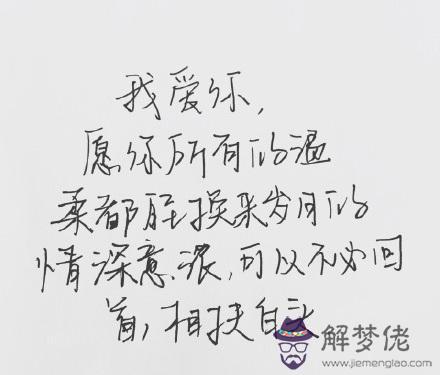 我爱你,
愿你所有的温
柔都能换来岁月的
情深意浓,可以不必回
首,相扶白头
解梦佬
www.jiemenglao.com